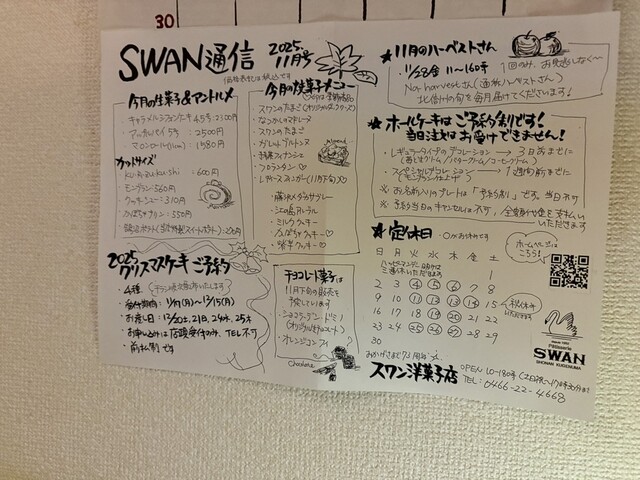 30
SWAN通信 2025. 11月号
価格表記は税込です
今月の生菓子&アントルメ
キャラメルシフォンケーキ 4.5号:2300円
アップルパイ 5号 : 2500円
マロンロール(11cm) : 1580円
カットサイズ
ku-ri-zu-ku-shi : 600円
モンブラン : 560円
クッキーシュー : 310円
かぼちゃプリン : 350円
今月の焼菓子メニュー
スワンのたまご
なつかしのマドレーヌ
スワンのたまご
ガレットブルトンヌ
フロランタン♡
レディースフィンガー(11月下旬)♡
江の島サブレ
ミルククッキー
かぼちゃクッキー♡
★11月のハーベストさん
11/28金 11~16時
1回のみ、お見逃しなく~
Nor harvestさん(通称ハーベストさん)
北信州の旬を毎月届けてくださいます!
★ホールケーキはご予約制です!
当日注文はお受けできません!
・レギュラータイプのデコレーション → 3日前までに
(生クリーム/バタークリーム/コーヒークリーム)
・スペシャルデコレーション → 1週間前までに
(モンブラン仕上げ)
※お名前入りのプレートは「予約制」です。当日不可
※予約当日のキャンセルは不可、全額代金を支払い
いただきます
★定休日
○がお休みです
ホームページは
こちら!
日 月 火 水 木 金 土
1
2 3 4 5 6 7 8
9 10 11 12 13 14 15
16 17 18 19 20 21 22
23 24 25 26 27 28 29
30
2025 クリスマスケーキご予約
・4種
・受付期間 : 11/1(月)~12/15(月)
・お渡し日 : 12/20土, 21日, 24水, 25木
・お申し込みは店頭受付のみ、TEL不可
・前払制です
チョコレート菓子は
11月下旬の販売を
予定しています
・オレンジコンフィ
chocolate
おかげさまで73周年
since 1952
Pâtisserie
SWAN
SHONAN KUGENUMA
スワン洋菓子店
OPEN 10-18時
TEL: 0466-22-4668